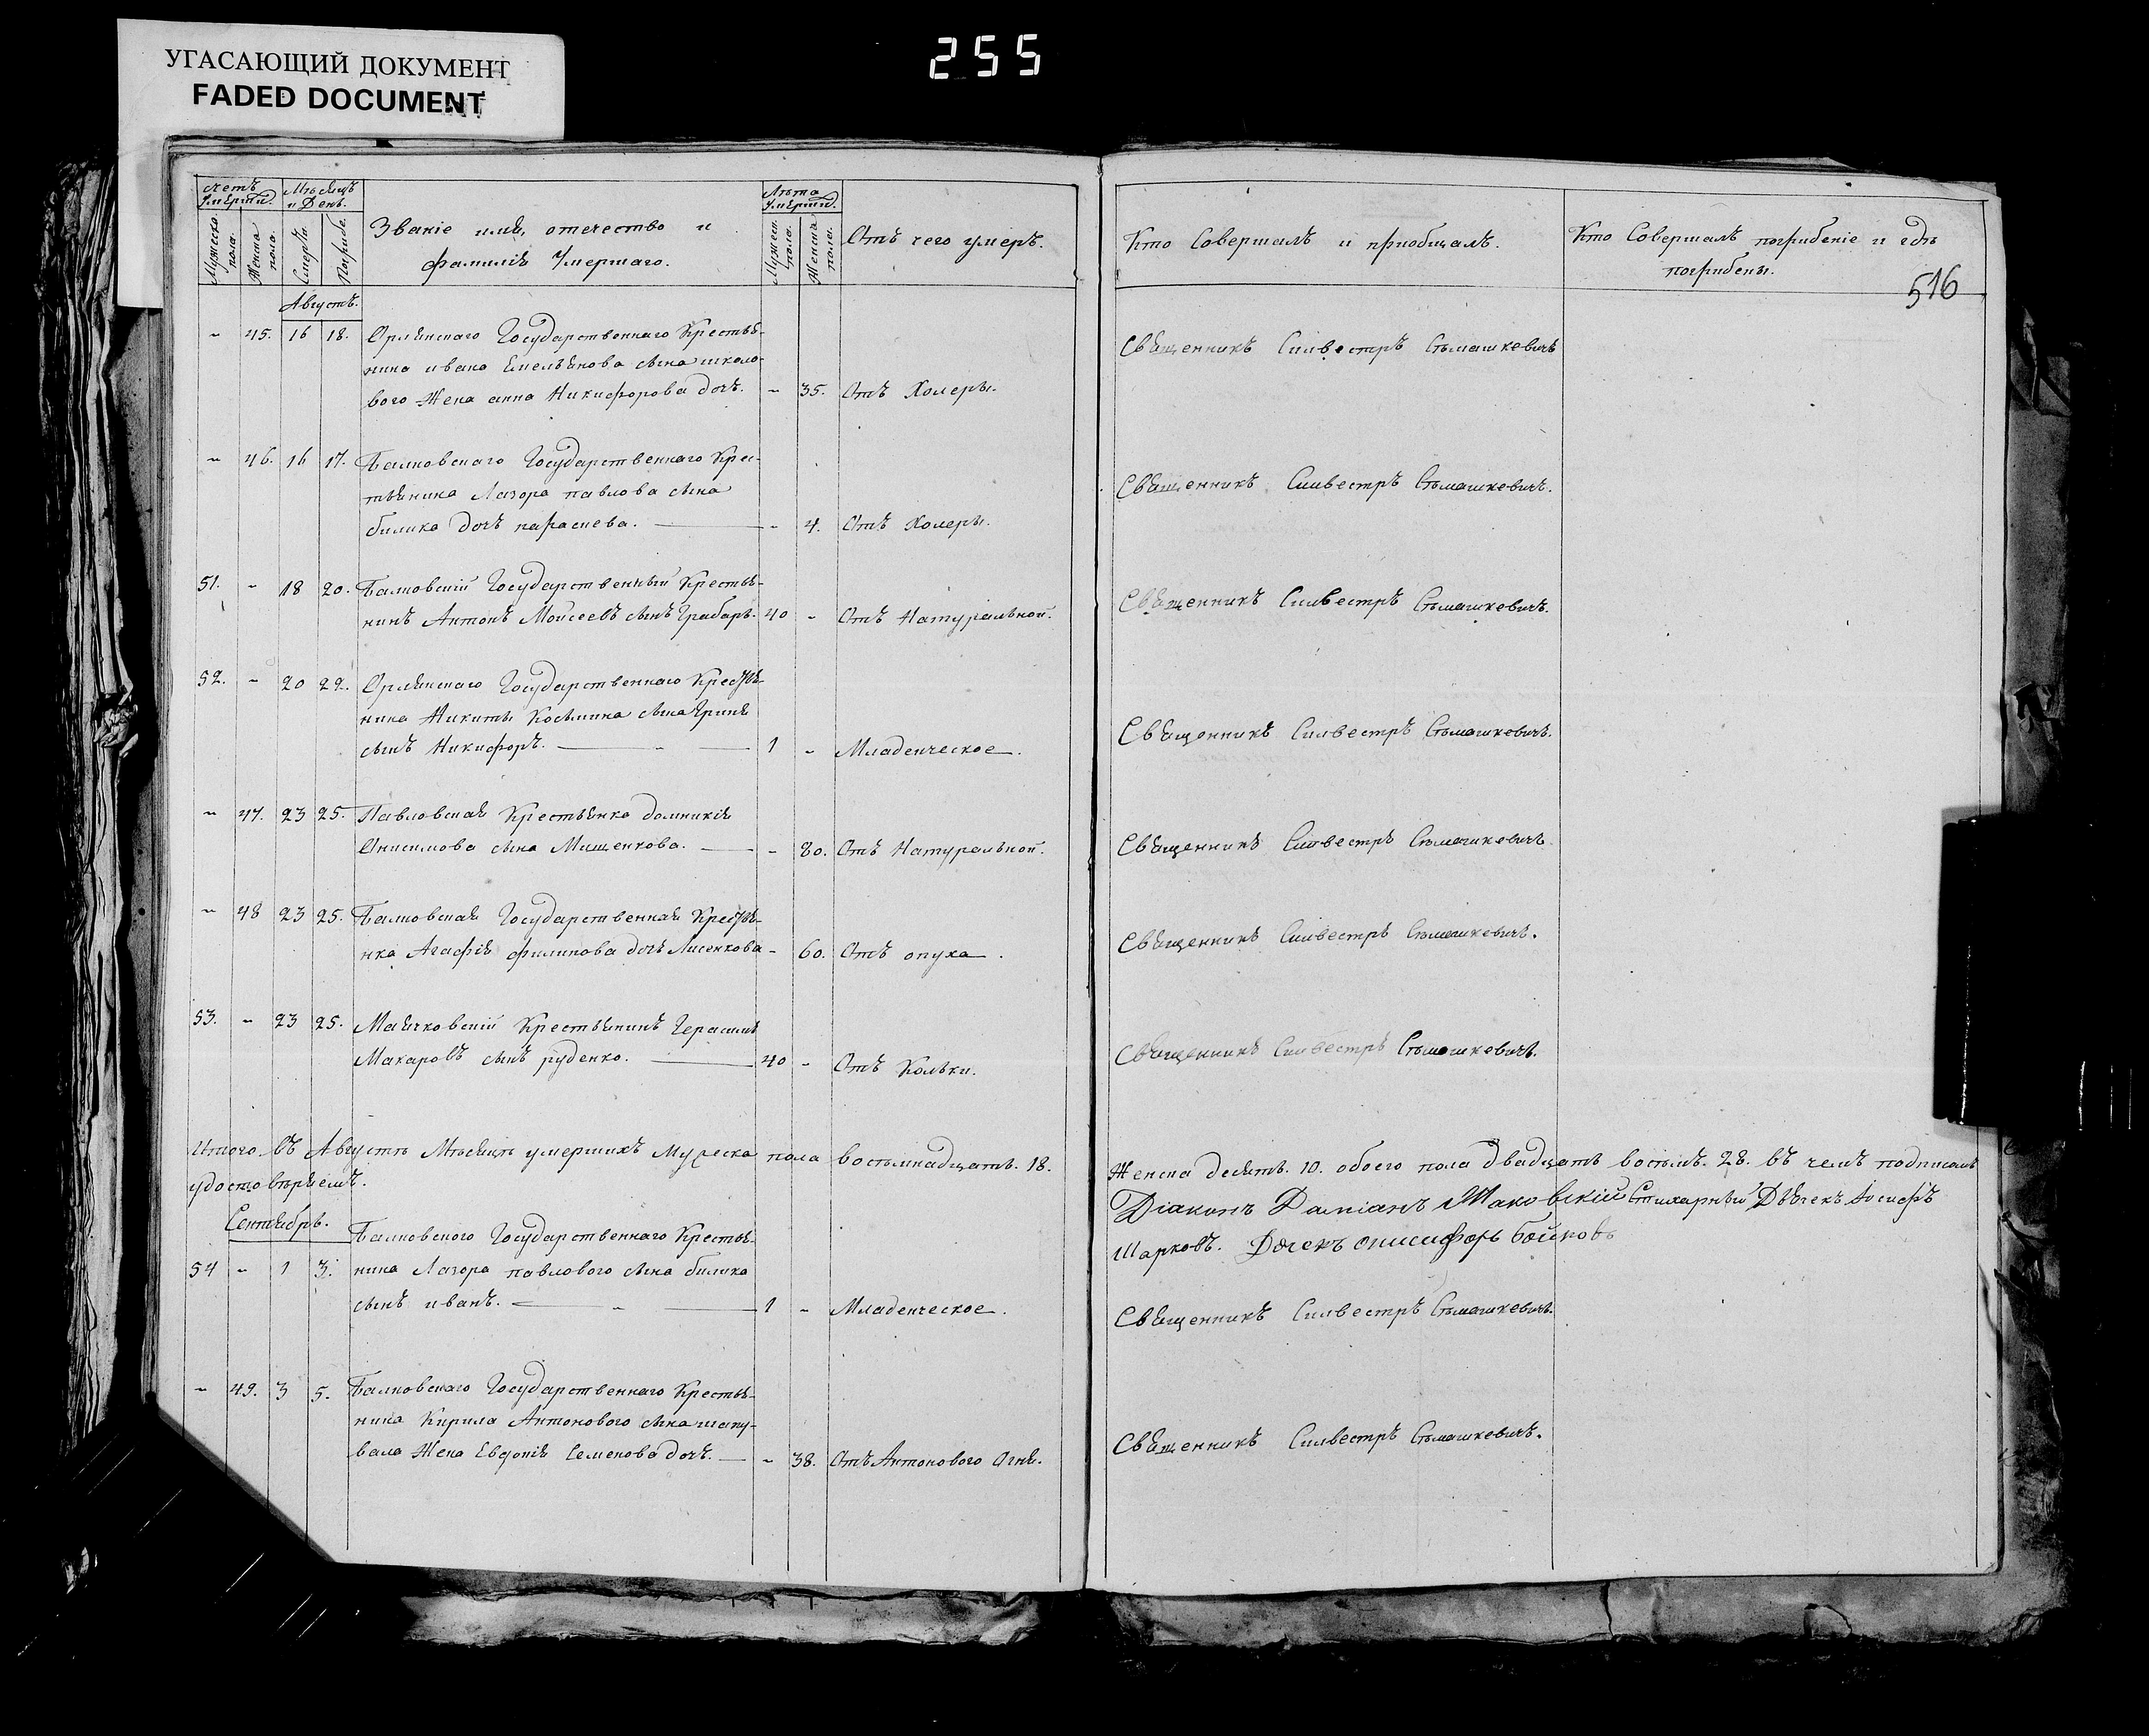 УГАСАЮЩИЙ ДОКУМЕНТ
FADED DOCUMENT
255
516
Счетъ умерши. Мѣсяцъ и День. Званіе имя, отечество и фамилія Умершаго. Лѣта умерши. Отъ чего умеръ. Кто Совершалъ и пріобщалъ. Кто Совершалъ погрибеніе и гдѣ погрибены.
Мужеска пола. Женска пола. Смерти. Погрибе. Мужеск. пола. Женска пола.
Августъ.
- 45. 16 18. Орлянскаго Государственнаго Крестья-
нина ивана Емельянова сына школо-
вого Жена анна Никифорова дочь. - 35. Отъ Холеры. Священникъ Силвестръ Стьмашкевичъ
- 46. 16 17. Балковскаго Государственнаго Крес-
тьянина Лазора павлова сына
билика дочь параскева. - 4. Отъ Холеры. Священникъ Силвестръ Стьмашкевичъ.
51. - 18 20. Балковскій Государственный Крестья-
нинъ Антонъ Мойсеевъ сынъ Грабаръ. 40 - Отъ Натуральной. Священникъ Силвестръ Стьмашкевичъ.
52. - 20 22. Орлянскаго Государственнаго Крестья-
нина Никиты Косьмина сына Гриня
сынъ Никифоръ. 1 - Младенческое. Священникъ Силвестръ Стьмашкевичъ.
- 47. 23 25. Павловская Крестьянка домникія
Онисимова сына Мищенкова. - 80. Отъ Натуральной. Священникъ Силвестръ Стьмашкевичъ.
- 48 23 25. Балковская Государственная Крестья-
нка Агафія филипова дочь Лисенкова - 60. Отъ опуха. Священникъ Силвестръ Стьмашкевичъ.
53. - 23 25. Маячковскій Крестьянинъ Герасимъ
Макаровъ сынъ руденко. 40 - Отъ Кольки. Священникъ Силвестръ Стьмашкевичъ.
Итого въ Августѣ Мѣсяцѣ умершихъ Мужеска пола восьмнадцать. 18. Женска десять. 10. обоего пола двадцать восьмъ. 28. въ чемъ подписомъ
удостовѣряемъ. Діаконъ Даміанъ Маковскій Стихарный Дьячекъ Іосифъ
Шарковъ. Дячекъ онисифоръ бойковъ
Сентябрь.
Балковского Государственнаго Крестья-
54 - 1 3. нина Лазора павлового сына билика
сынъ иванъ. 1 - Младенческое. Священникъ Силвестръ Стьмашкевичъ.
- 49. 3 5. Балковскаго Государственнаго Крестья-
нина Кирила Антонового сына шапу-
вала Жена Евфонія Семенова дочь. - 38. Отъ Антонового Огня. Священникъ Силвестръ Стьмашкевичъ.